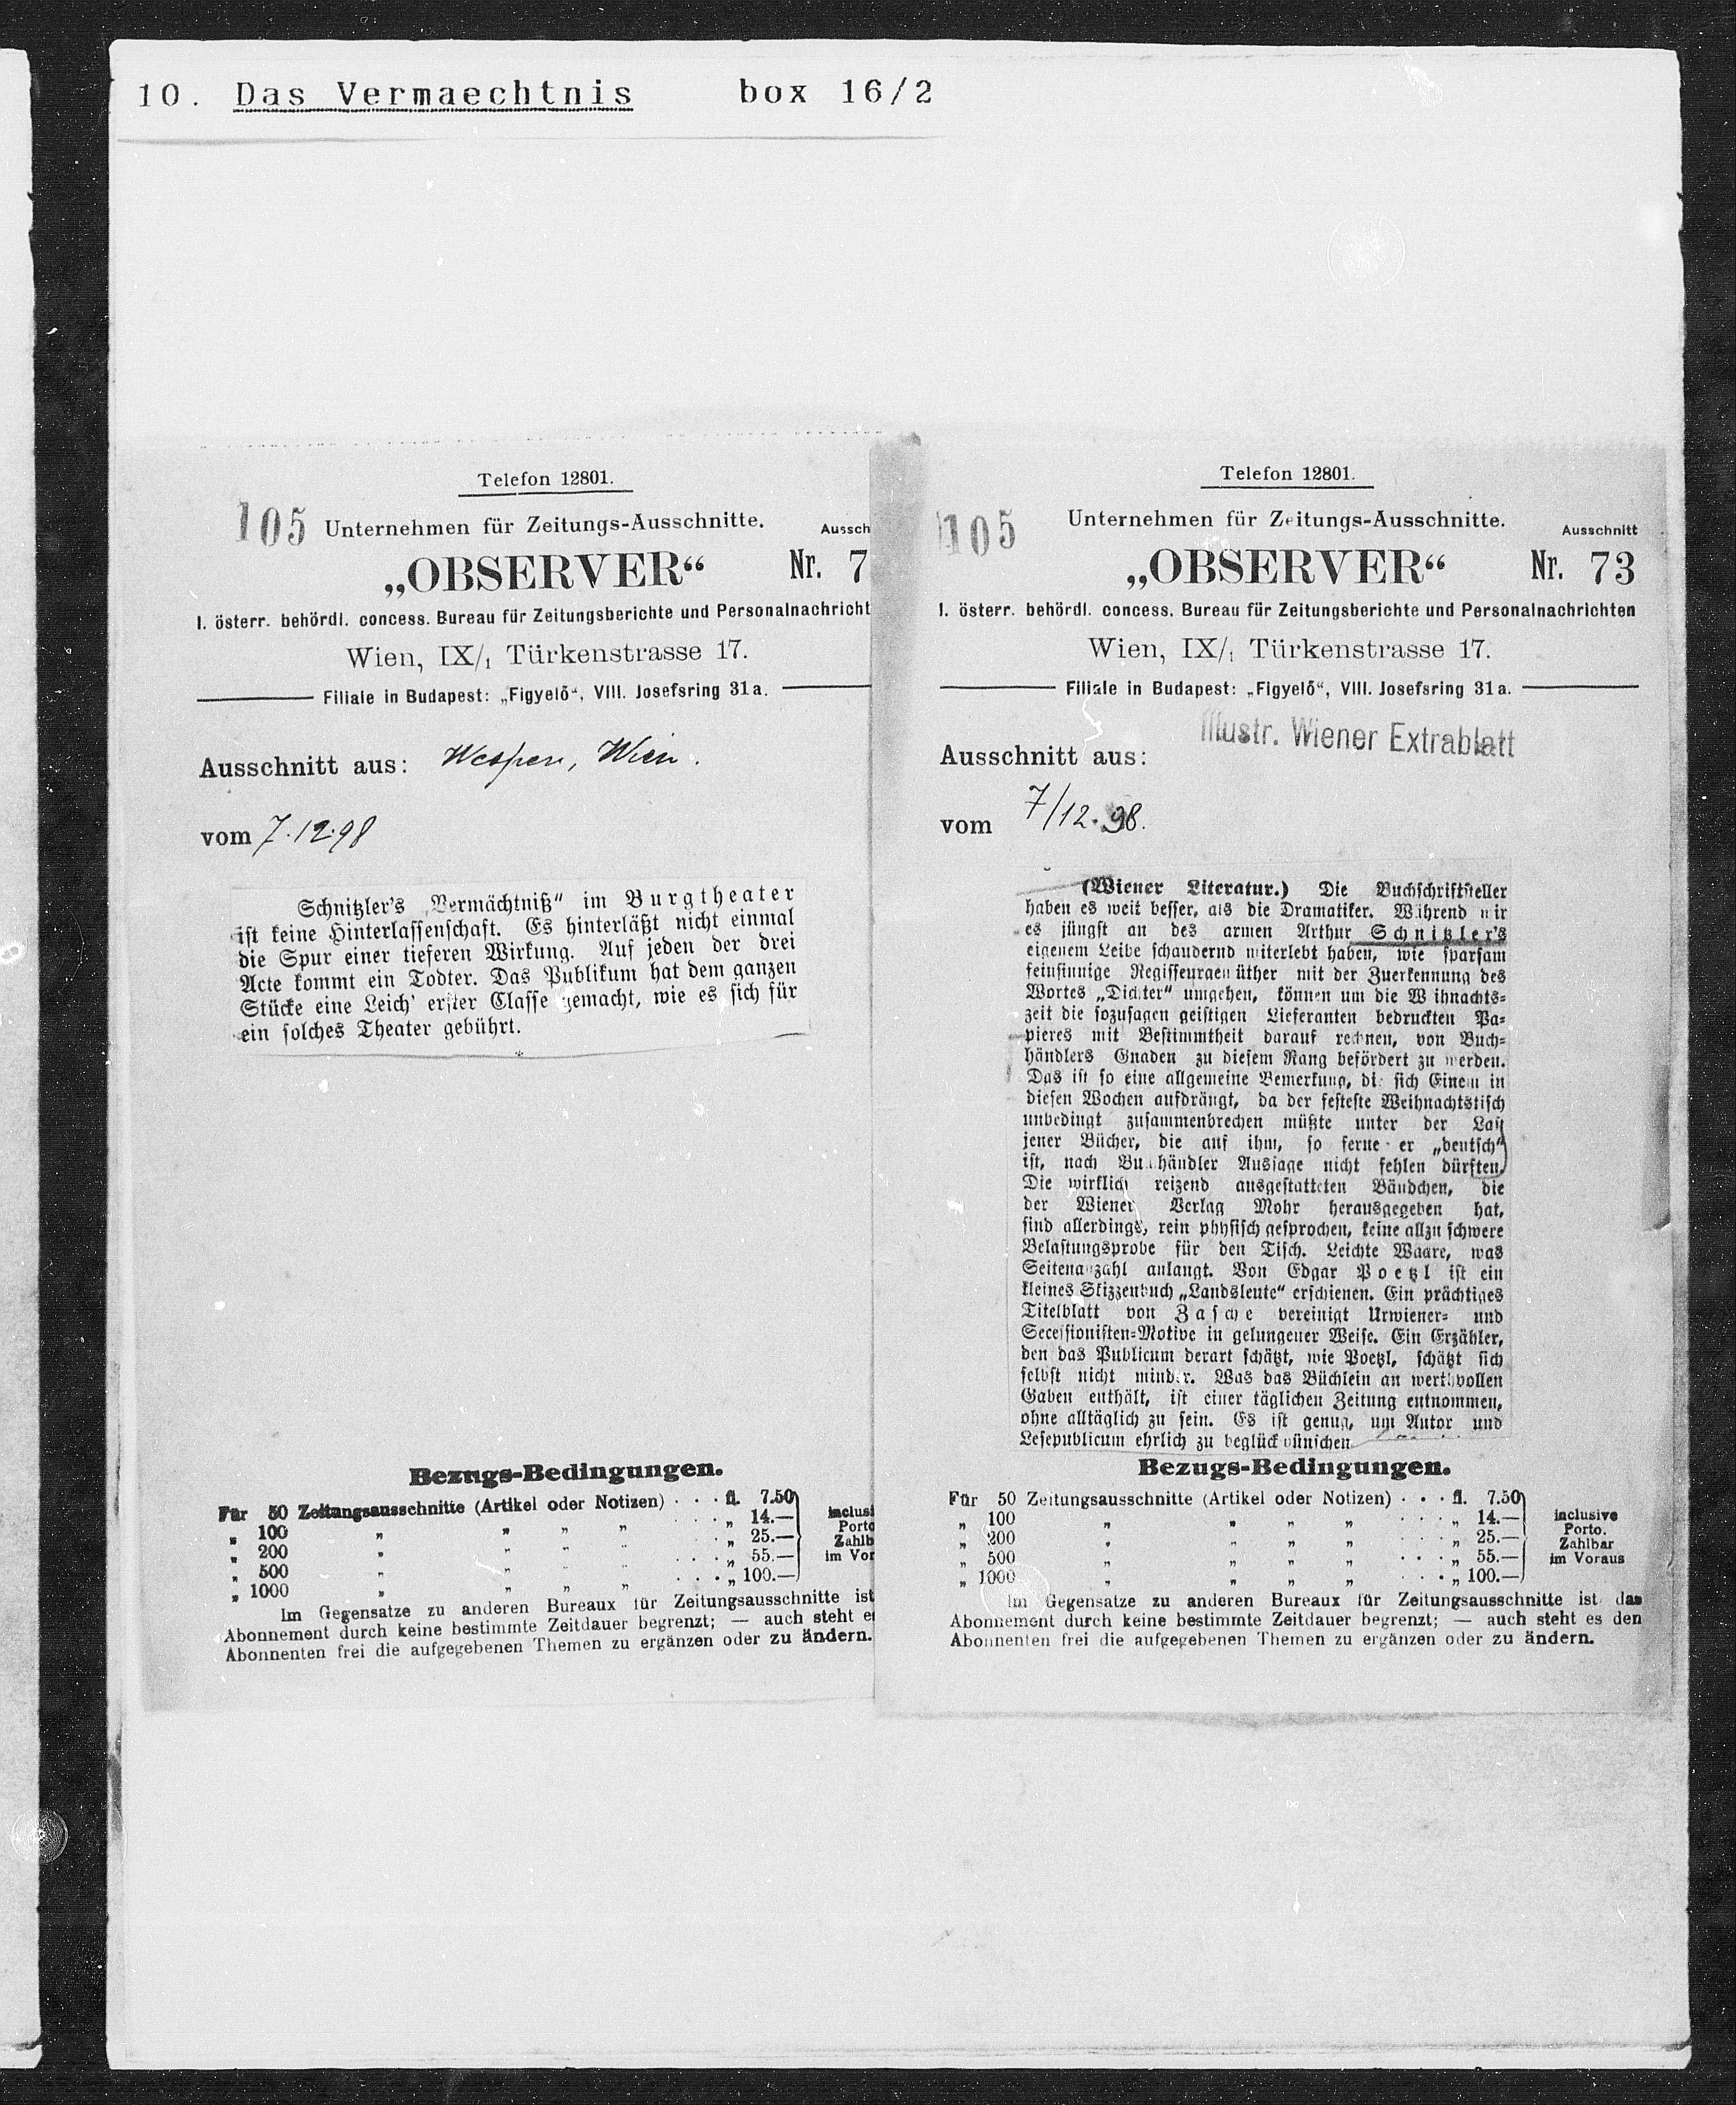 10. Das Vermaechtnis box 16/2
Telefon 12801.
105 Unternehmen für Zeitungs-Ausschnitte. Aussch
„OBSERVER“ Nr. 7
I. österr. behördl. concess. Bureau für Zeitungsberichte und Personalnachricht
Wien, IX/1 Türkenstrasse 17.
Filiale in Budapest: „Figyelő“, VIII. Josefsring 31a.
Ausschnitt aus: Wespen, Wien.
vom 7.12.98
Schnitzler's „Vermächtniß“ im Burgtheater
ist keine Hinterlassenschaft. Es hinterläßt nicht einmal
die Spur einer tieferen Wirkung. Auf jeden der drei
Acte kommt ein Todter. Das Publikum hat dem ganzen
Stücke eine Leich' erster Classe gemacht, wie es sich für
ein solches Theater gebührt.
*
Bezugs-Bedingungen.
Für 50 Zeitungsausschnitte (Artikel oder Notizen) . . . fl. 7.50
„ 100 „ „ „ „ . . . „ 14.—
„ 200 „ „ „ „ . . . „ 25.—
„ 500 „ „ „ „ . . . „ 55.—
„ 1000 „ „ „ „ . . . „ 100.—
inclusi
Porto
Zahlb
im Vor
Im Gegensatze zu anderen Bureaux für Zeitungsausschnitte ist
Abonnement durch keine bestimmte Zeitdauer begrenzt; — auch steht es
Abonnenten frei die aufgegebenen Themen zu ergänzen oder zu ändern.
Telefon 12801.
105 Unternehmen für Zeitungs-Ausschnitte. Ausschnitt
„OBSERVER“ Nr. 73
I. österr. behördl. concess. Bureau für Zeitungsberichte und Personalnachrichten
Wien, IX/1 Türkenstrasse 17.
Filiale in Budapest: „Figyelő“, VIII. Josefsring 31a.
Illustr. Wiener Extrablatt
Ausschnitt aus:
vom 7/12.98.
(Wiener Literatur.) Die Buchschriftsteller
haben es weit besser, als die Dramatiker. Während wir
es jüngst an des armen Arthur Schnitzler's
eigenem Leibe schaudernd miterlebt haben, wie sparsam
feinsinnige Regisseurgemüther mit der Zuerkennung des
Wortes „Dichter“ umgehen, können um die Weihnachts-
zeit die sozusagen geistigen Lieferanten bedruckten Pa-
pieres mit Bestimmtheit darauf rechnen, von Buch-
händlers Gnaden zu diesem Rang befördert zu werden.
Das ist so eine allgemeine Bemerkung, die sich Einem in
diesen Wochen aufdrängt, da der festeste Weihnachtstisch
unbedingt zusammenbrechen müßte unter der Last
jener Bücher, die auf ihm, so ferne er „deutsch“
ist, nach Buchhändler Aussage nicht fehlen dürften.
Die wirklich reizend ausgestatteten Bändchen, die
der Wiener Verlag Mohr herausgegeben hat,
sind allerdings, rein physisch gesprochen, keine allzu schwere
Belastungsprobe für den Tisch. Leichte Waare, was
Seitenanzahl anlangt. Von Edgar Poetzl ist ein
kleines Skizzenbuch „Landsleute“ erschienen. Ein prächtiges
Titelblatt von Zasche vereinigt Urwiener- und
Secessionisten-Motive in gelungener Weise. Ein Erzähler,
den das Publicum derart schätzt, wie Poetzl, schätzt sich
selbst nicht minder. Was das Büchlein an werthvollen
Gaben enthält, ist einer täglichen Zeitung entnommen,
ohne alltäglich zu sein. Es ist genug, um Autor und
Lesepublicum ehrlich zu beglückwünschen
Bezugs-Bedingungen.
Für 50 Zeitungsausschnitte (Artikel oder Notizen) . . . fl. 7.50
„ 100 „ „ „ „ . . . „ 14.—
„ 200 „ „ „ „ . . . „ 25.—
„ 500 „ „ „ „ . . . „ 55.—
„ 1000 „ „ „ „ . . . „ 100.—
inclusive
Porto.
Zahlbar
im Voraus
Im Gegensatze zu anderen Bureaux für Zeitungsausschnitte ist das
Abonnement durch keine bestimmte Zeitdauer begrenzt; — auch steht es den
Abonnenten frei die aufgegebenen Themen zu ergänzen oder zu ändern.